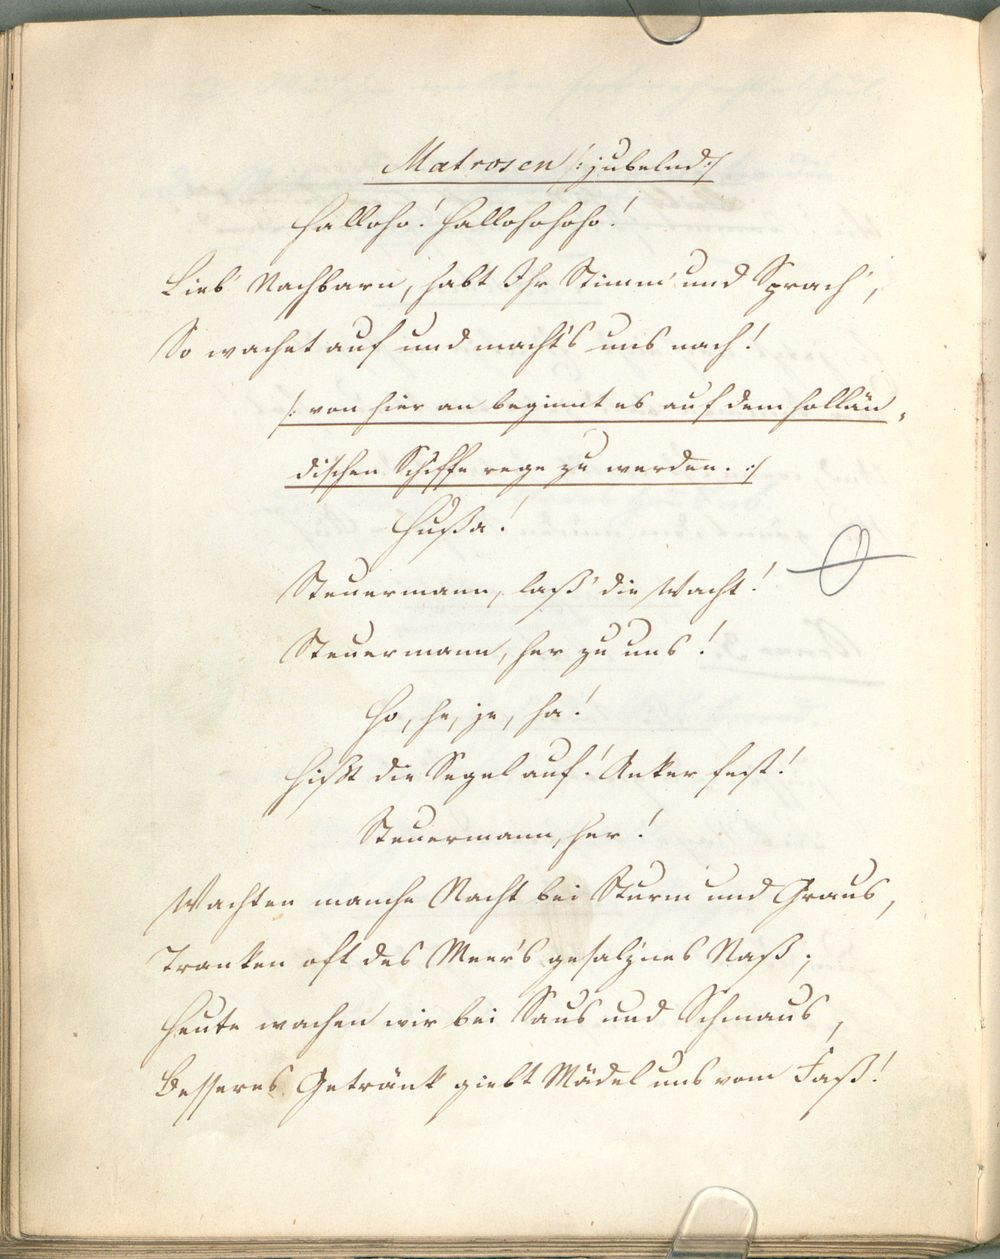 Matrosen /: jubelnd :/
Halloho! Hallohohoho!
Lieb' Nachbarn, habt Ihr Stimm' und Sprach',
So wachet auf und macht's uns nach!
/: von hier an beginnt es auf dem hollän-
dischen Schiffe rege zu werden. :/
Hussa!
Steuermann, laß' die Wacht!
Steuermann, her zu uns!
Ho, he, je, ha!
Hißt die Segel auf! Anker fest!
Steuermann, her!
Wachten manche Nacht bei Sturm und Graus,
Tranken oft des Meer's gesalz'nes Naß;
Heute wachen wir bei Saus und Schmaus,
Besseres Getränk giebt Mädel uns vom Faß!